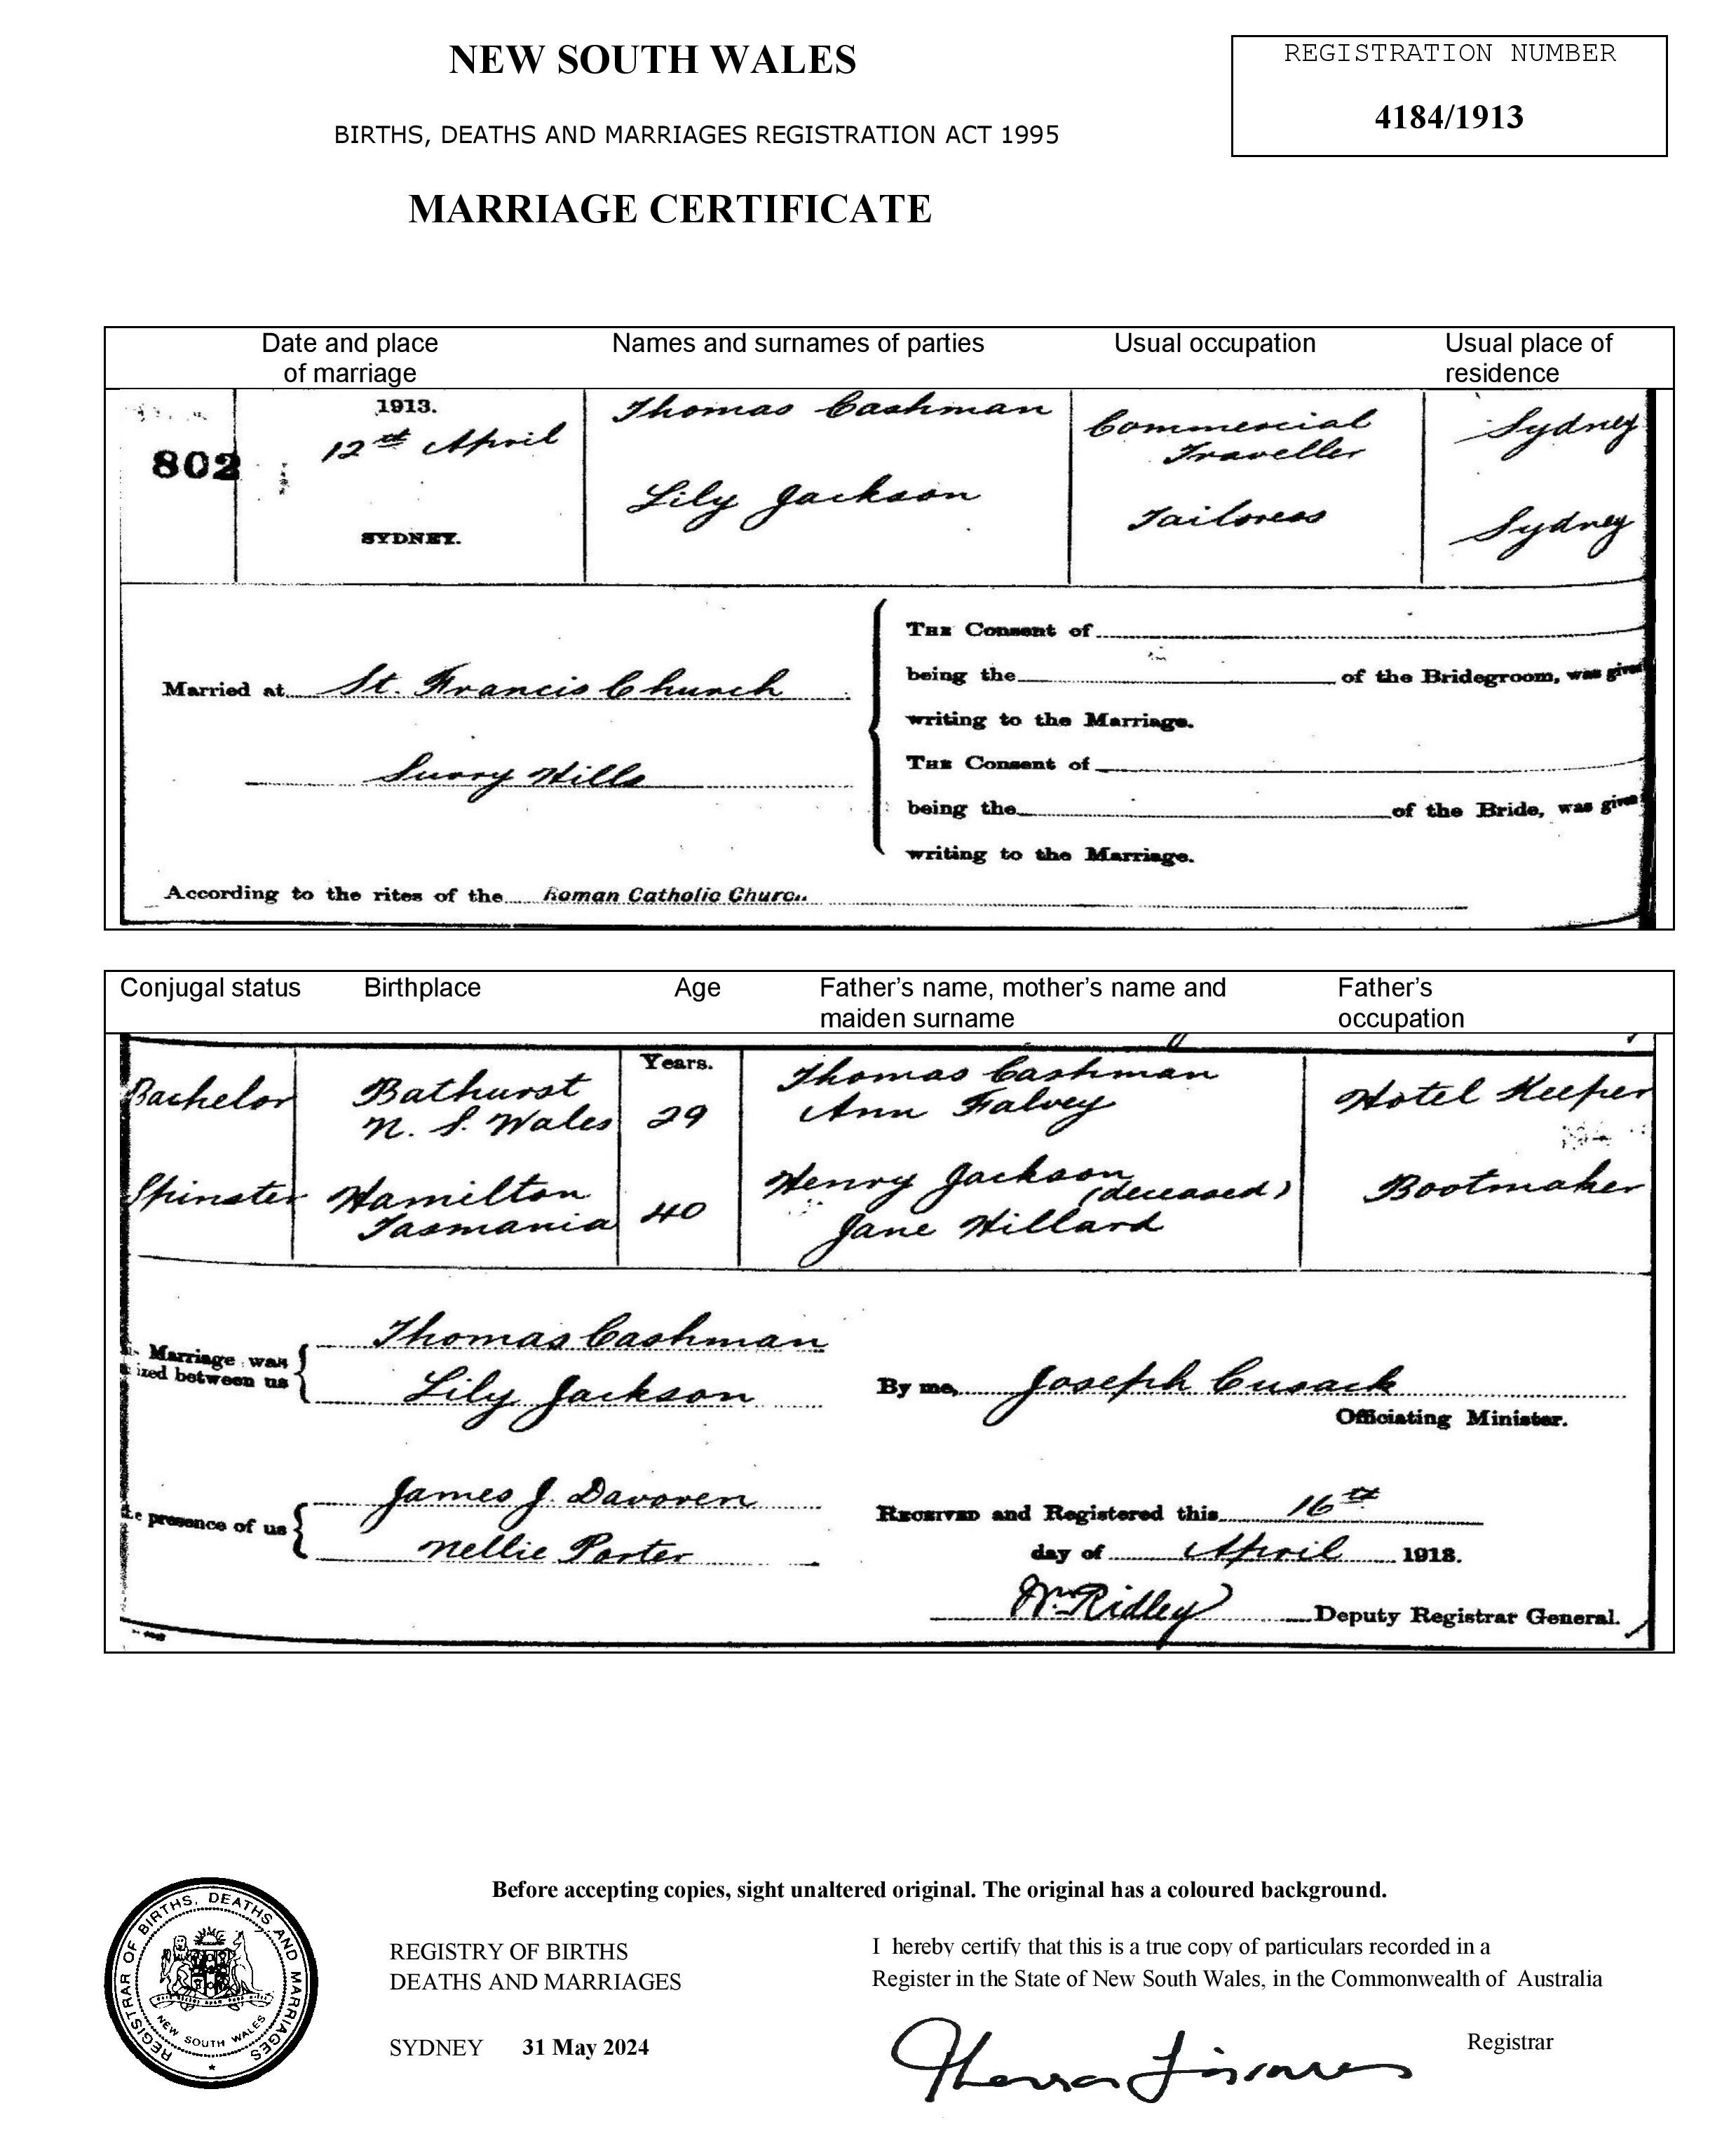 NEW SOUTH WALES
REGISTRATION NUMBER
4184/1913
BIRTHS, DEATHS AND MARRIAGES REGISTRATION ACT 1995
MARRIAGE CERTIFICATE
Date and place of marriage
Names and surnames of parties
Usual occupation
Usual place of residence
802
1913.
12th April
SYDNEY.
Thomas Cashman
Commercial Traveller
Sydney
Lily Jackson
Tailoress
Sydney
Married at St. Francis Church
Surry Hills
THE Consent of
being the of the Bridegroom, was given
writing to the Marriage.
THE Consent of
being the of the Bride, was given
writing to the Marriage.
According to the rites of the Roman Catholic Church
Conjugal status
Birthplace
Age
Father's name, mother's name and maiden surname
Father's occupation
Years.
Bachelor
Bathurst
N. S. Wales
29
Thomas Cashman
Ann Falvey
Hotel Keeper
Spinster
Hamilton
Tasmania
40
Henry Jackson
(deceased)
Jane Hillard
Bootmaker
Marriage was
ized between us
Thomas Cashman
Lily Jackson
By me, Joseph Cusack
Officiating Minister.
presence of us
James J. Davoren
Nellie Porter
RECEIVED and Registered this 16th
day of April 1913.
Wm Ridley Deputy Registrar General.
Before accepting copies, sight unaltered original. The original has a coloured background.
REGISTRAR OF BIRTHS, DEATHS AND MARRIAGES
NEW SOUTH WALES
REGISTRY OF BIRTHS
DEATHS AND MARRIAGES
SYDNEY 31 May 2024
I hereby certify that this is a true copy of particulars recorded in a
Register in the State of New South Wales, in the Commonwealth of Australia
Registrar